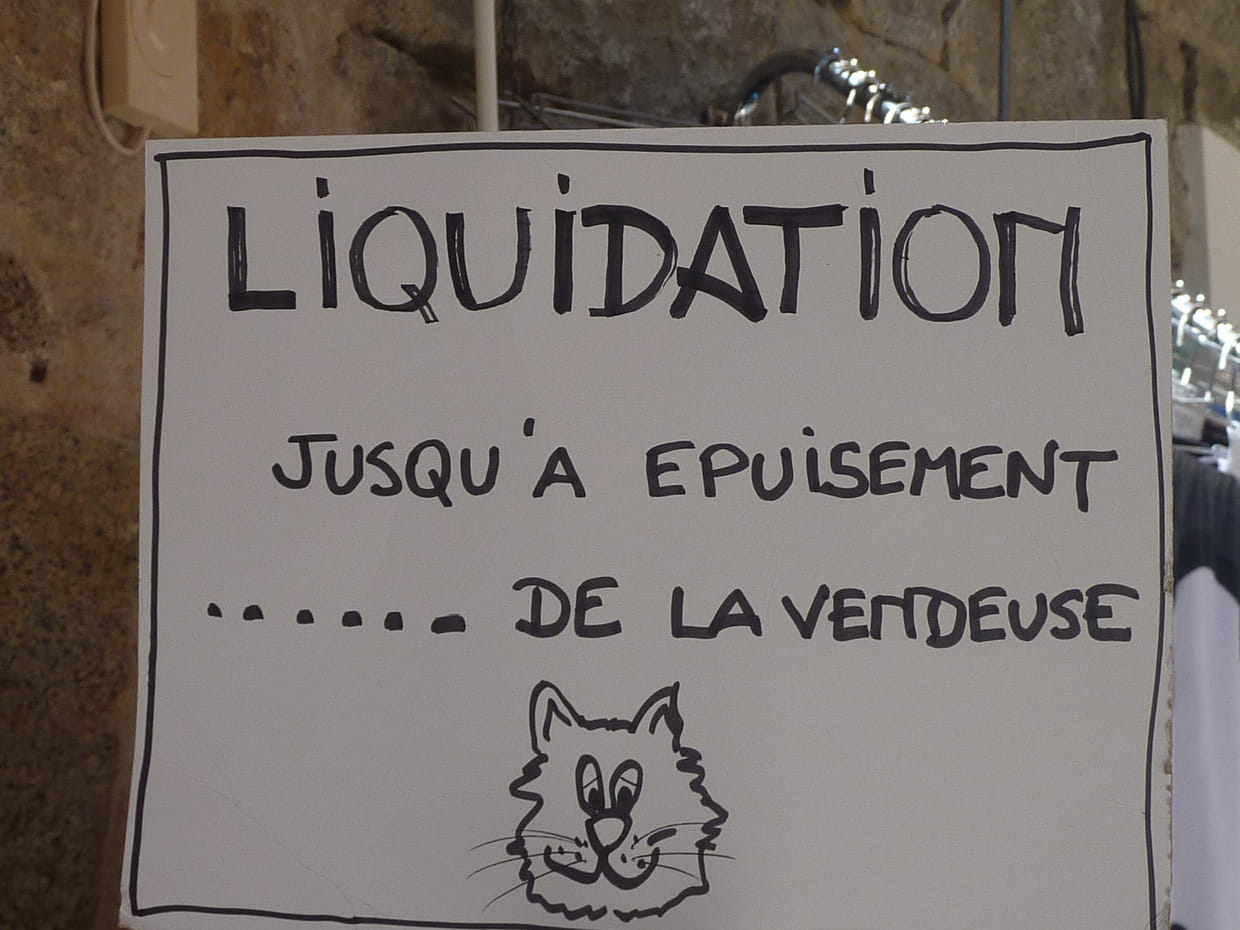 LiQUiDATiON
JUSQU'A EPUiSEMENT
...... DE LA VENDEUSE